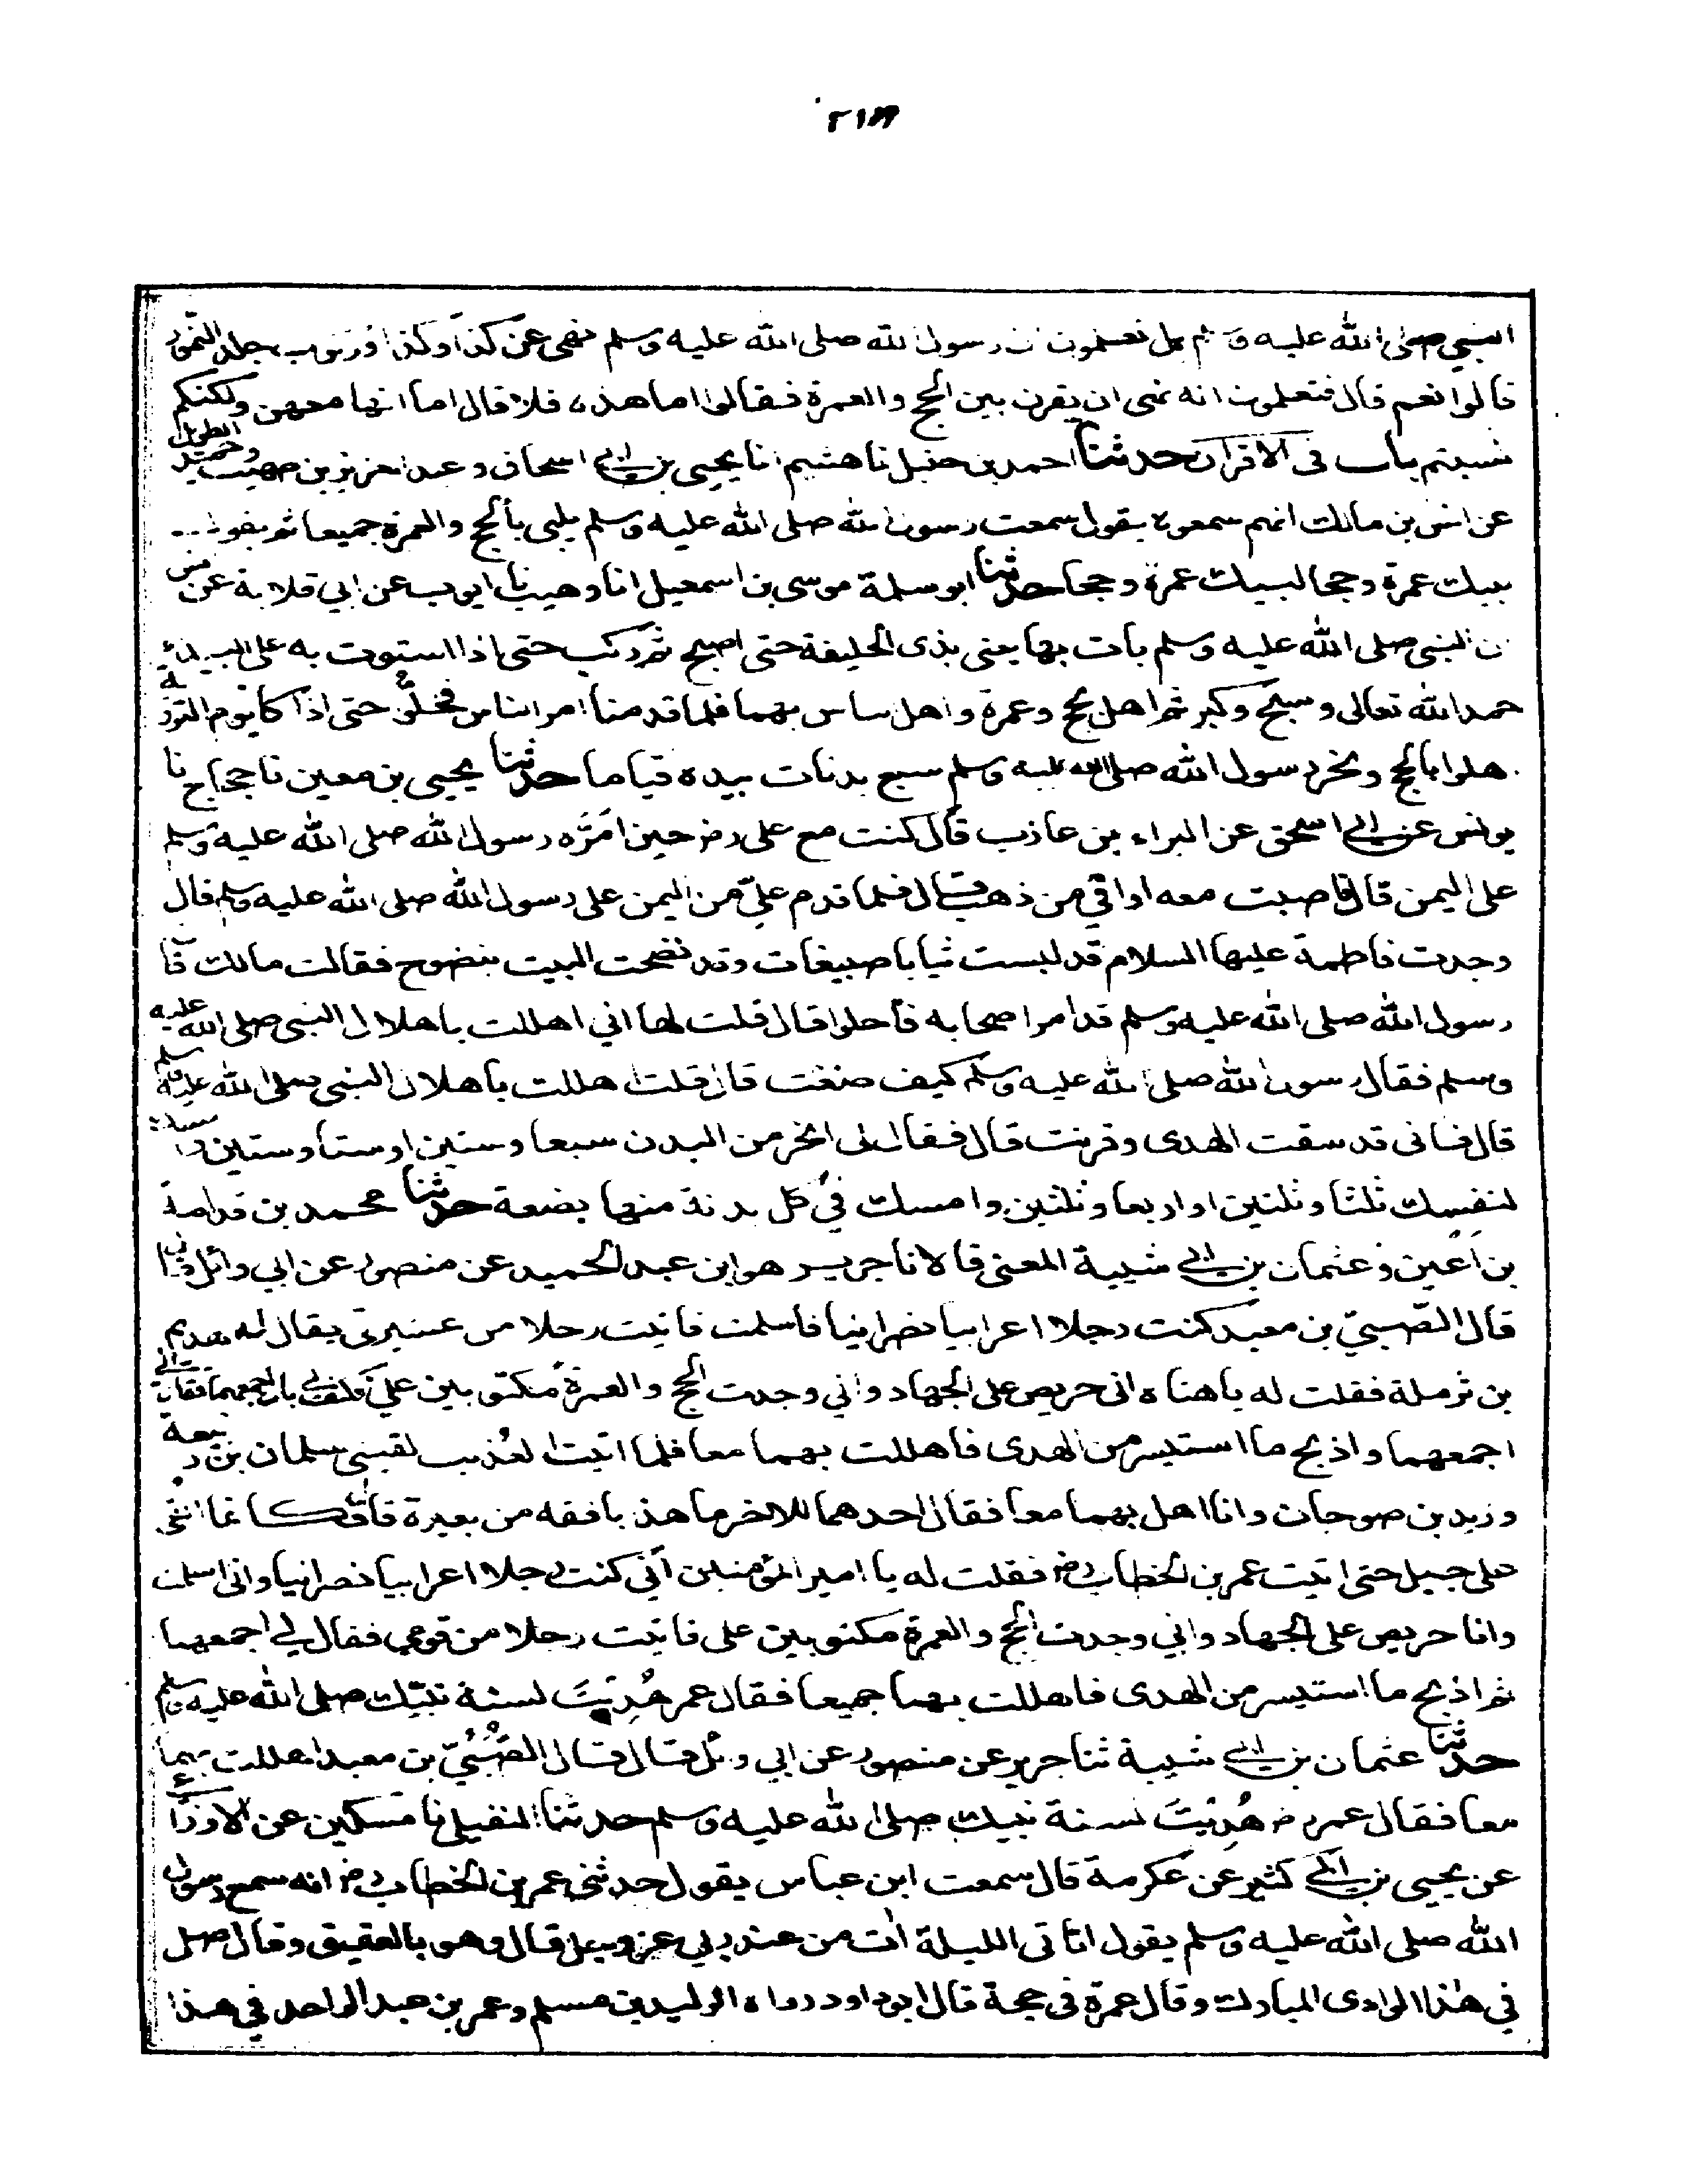 النبي صلى الله عليه وسلم هل تعلمون ان رسول الله صلى الله عليه وسلم نهى عن كذا وكذا وركوب جلد النمور
قالوا نعم قال فتعلمون انه نهى ان يقرن بين الحج والعمرة فقالوا اما هذه فلا قال اما انها معهن ولكنكم
نسيتم باب فى الاقران حدثنا احمد بن حنبل نا هشيم انا يحيى بن ابي اسحاق وعبد العزيز بن صهيب وحميد الطويل
عن انس بن مالك انهم سمعوه يقول سمعت رسول الله صلى الله عليه وسلم يلبى بالحج والعمرة جميعا ثم يقول
لبيك عمرة وحجا لبيك عمرة وحجا حدثنا ابو سلمة موسى بن اسمعيل انا وهيب نا ايوب عن ابي قلابة عن انس
ان النبي صلى الله عليه وسلم بات بها يعنى بذى الحليفة حتى اصبح ثم ركب حتى اذا استوت به على البيداء
حمد الله تعالى وسبح وكبر ثم اهل بحج وعمرة واهل الناس بهما فلما قدمنا امر الناس فحلوا حتى اذا كا يوم التروية
اهلوا بالحج ونحر رسول الله صلى الله عليه وسلم سبع بدنات بيده قياما حدثنا يحيى بن معين نا حجاج نا
يونس عن ابي اسحق عن البراء بن عاذب قال كنت مع على رض حين امره رسول الله صلى الله عليه وسلم
على اليمن قال فاصبت معه اواقي من ذهب قال فلما قدم علي من اليمن على رسول الله صلى الله عليه وسلم قال
وجدت فاطمة عليها السلام قد لبست ثيابا صبيغات وقد نضحت البيت بنضوح فقالت مالك فان
رسول الله صلى الله عليه وسلم قد امر اصحابه فأحلوا قال قلت لها اني اهللت باهلال النبي صلى الله عليه
وسلم فقال رسول الله صلى الله عليه وسلم كيف صنعت قال قلت اهللت باهلال النبى صلى الله عليه وسلم
قال فانى قد سقت الهدى وقرنت قال فقال لى انحر من البدن سبعا وستين او ستا وستين وامسك
لنفسك ثلثا وثلثين او اربعا وثلثين وامسك فى كل بدنة منها بضعة حدثنا محمد بن قدامة
بن اعين وعثمان بن ابي شيبة المعنى قالا نا جرير هو ابن عبد الحميد عن منصور عن ابي وائل قال
قال الصبي بن معبد كنت رجلا اعرابيا نصرانيا فاسلمت فاتيت رجلا من عشيرتى يقال له هديم
بن ثرملة فقلت له يا هناه انى حريص على الجهاد واني وجدت الحج والعمرة مكتوبين علي فكيف لي بان اجمعهما فقال
اجمعهما واذبح ما استيسر من الهدى فاهللت بهما معا فلما اتيت العذيب لقينى سلمان بن ربيعة
وزيد بن صوحان وانا اهل بهما معا فقال احدهما للاخر ما هذا بافقه من بعيره قال فكانما القى
على جبل حتى اتيت عمر بن الخطاب رض فقلت له يا امير المؤمنين اني كنت رجلا اعرابيا نصرانيا وانى اسلمت
وانا حريص على الجهاد واني وجدت الحج والعمرة مكتوبين على فاتيت رجلا من قومي فقال لي اجمعهما
ثم اذبح ما استيسر من الهدى فاهللت بهما جميعا فقال عمر هُدِيتَ لسنة نبيك صلى الله عليه وسلم
حدثنا عثمان بن ابي شيبة ثنا جرير عن منصور عن ابي وائل قال قال الصُّبَيّ بن معبد اهللت بهما
معا فقال عمر رض هُدِيتَ لسنة نبيك صلى الله عليه وسلم حدثنا النفيلي نا مسكين عن الاوزاعي
عن يحيى بن ابي كثير عن عكرمة قال سمعت ابن عباس يقول حدثنى عمر بن الخطاب رض انه سمع رسول
الله صلى الله عليه وسلم يقول اتانى الليلة ات من عند ربي عز وجل قال وهو بالعقيق وقال صل
في هذا الوادى المبارك وقال عمرة فى حجة قال ابو داود رواه الوليد بن مسلم وعمر بن عبد الواحد في هذا